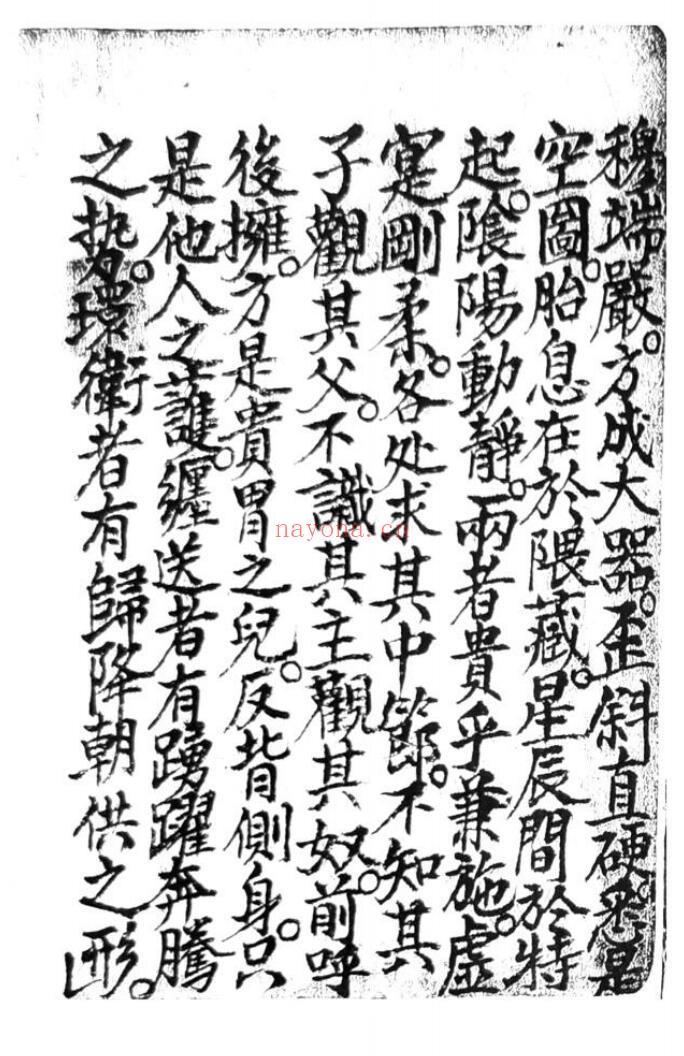 穆端嚴。方成大器。歪斜直硬。悉是
空圖。胎息在於隈藏。星辰間於特
起。陰陽動靜。兩者貴乎兼施。虛
寔剛柔。各处求其中節。不知其
子觀其父。不識其主觀其奴。前呼
後擁。方是貴胃之兒。反背側身。只
是他人之護。纒送者有踴躍奔騰
之势。環衛者有歸降朝供之形。
nayona.cn